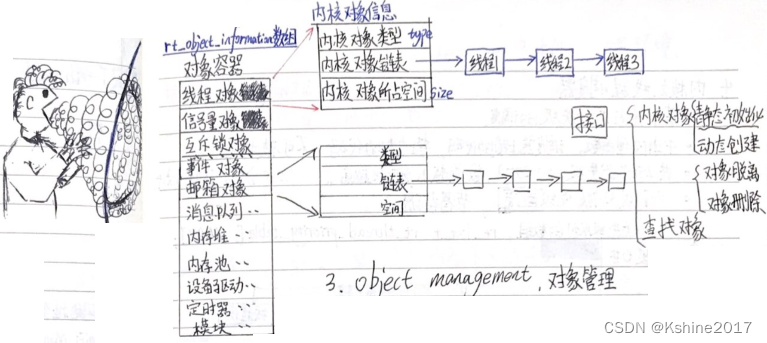 内核对象信息
rt_object_information数组
对象容器
线程对象
信号量对象
互斥锁对象
事件对象
邮箱对象
消息队列··
内存堆··
内存池··
设备驱动··
定时器··
模块··
内核对象类型 type
内核对象链表
内核对象所占空间 size
线程1
线程2
线程3
类型
链表
空间
接口
内核对象
静态初始化
动态创建
对象脱离
对象删除
查找对象
3. object management, 对象管理
CSDN @Kshine2017